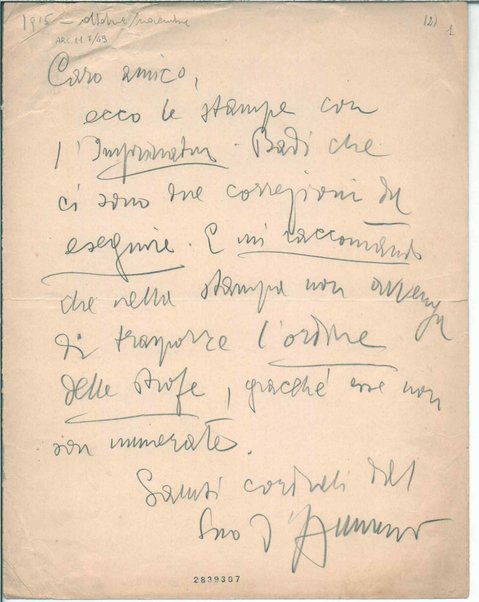 1915 – ottobre/novembre
ARC. 11.7/49
(2) 1
Caro amico,
ecco le stampe con
l'Imprimatur. Badi che
ci sono due correzioni da
eseguire. E mi raccomando
che nella stampa non avvenga
di trasporre l'ordine
delle strofe, giacché esse non
son numerate.
Saluti cordiali dal
Suo d'Annunzio
2839307